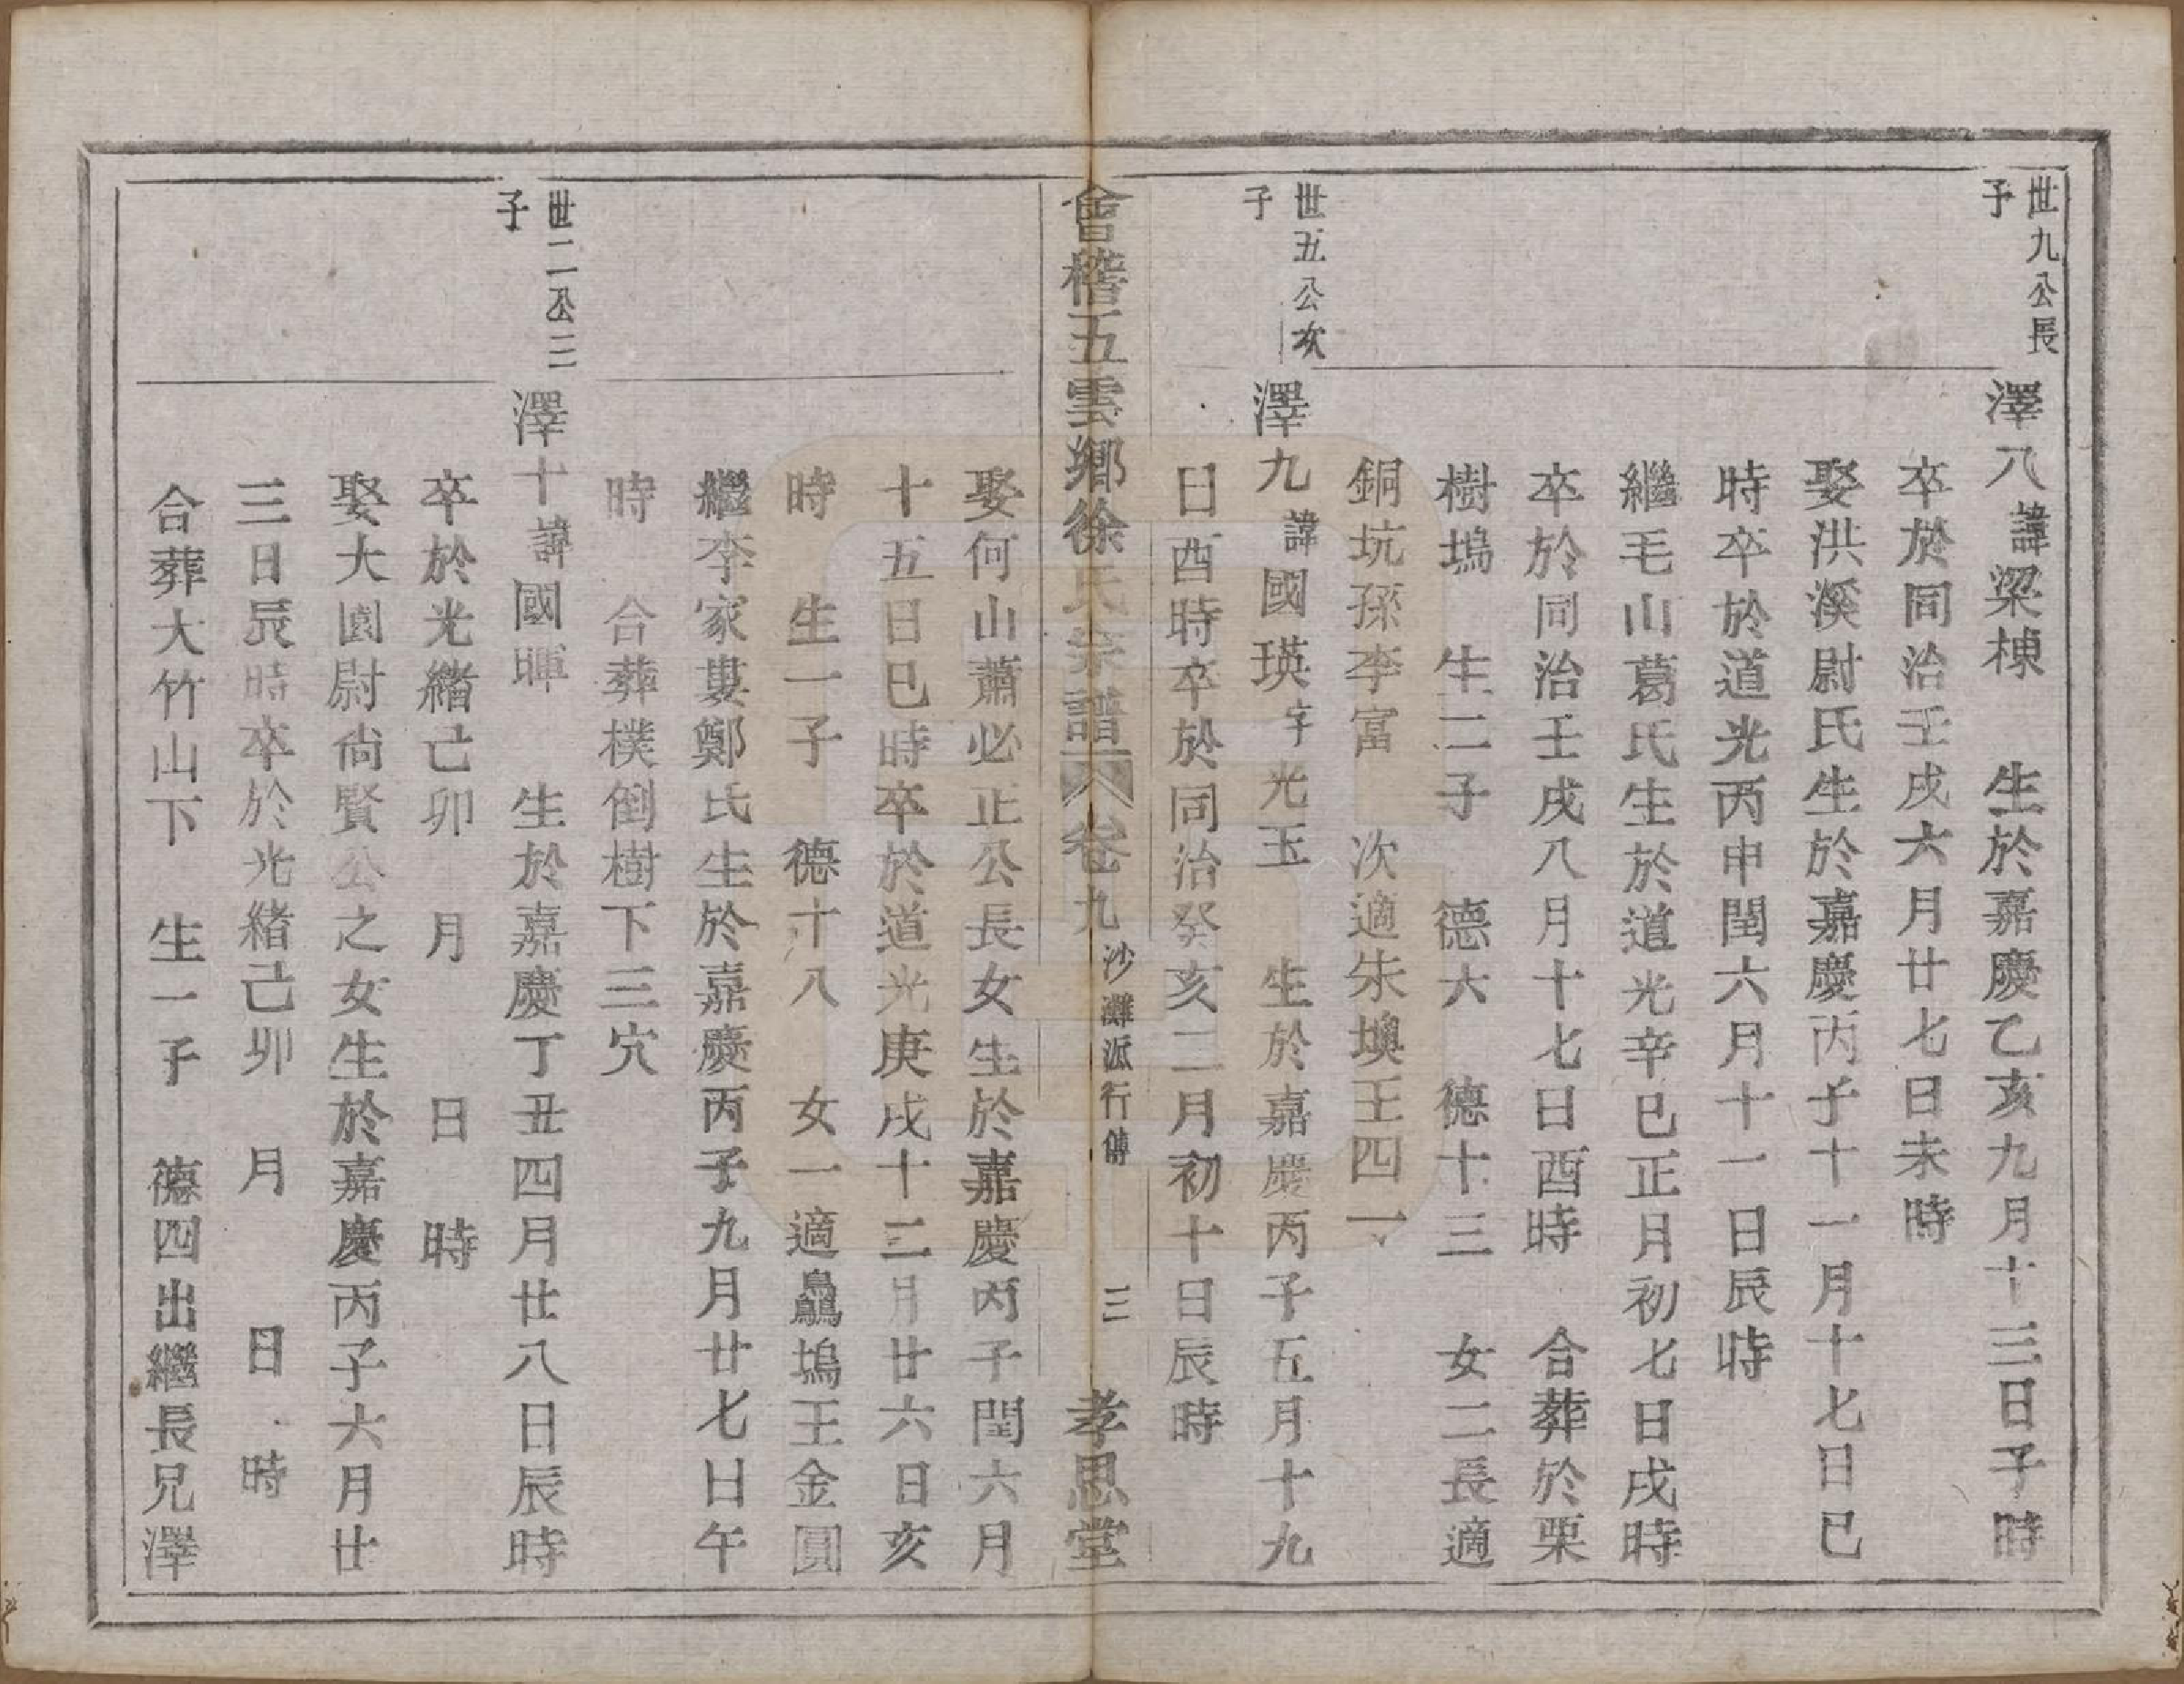 世九公長
子
澤八諱梁棟 生於嘉慶乙亥九月十三日子時
卒於同治壬戌六月廿七日未時
娶洪溪尉氏生於嘉慶丙子十一月十七日巳
時卒於道光丙申閏六月十一日辰時
繼毛山葛氏生於道光辛巳正月初七日戌時
卒於同治壬戌八月十七日酉時 合葬於栗
樹塢 生二子 德大 德十三 女二長適
銅坑孫李富 次適朱墺王四一
世五公次
子
澤九諱國瑛字光玉 生於嘉慶丙子五月十九
日酉時卒於同治癸亥二月初十日辰時
會稽五雲鄉徐氏宗譜 卷九 沙灘派行傳 三 孝思堂
娶何山蕭必正公長女生於嘉慶丙子閏六月
十五日巳時卒於道光庚戌十二月廿六日亥
時 生一子 德十八 女一適鱻塢王金圓
繼李家婁鄭氏生於嘉慶丙子九月廿七日午
時 合葬樸倒樹下三穴
世二公三
子
澤十諱國暉 生於嘉慶丁丑四月廿八日辰時
卒於光緒己卯 月 日 時
娶大園尉尚賢公之女生於嘉慶丙子六月廿
三日辰時卒於光緒己卯 月 日 時
合葬大竹山下 生一子 德四出繼長兄澤